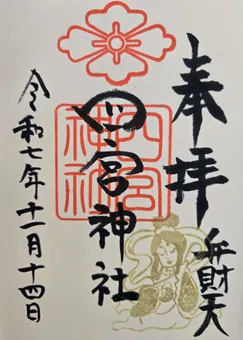 奉拝
弁財天
四宮神社
四宮神社
令和七年十一月十四日